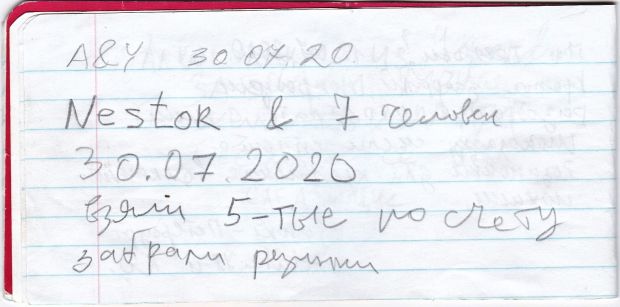 A&Y 30 07 20
Nestor & 7 человек
30.07.2020
взяли 5-тые по счету
забрали резинки